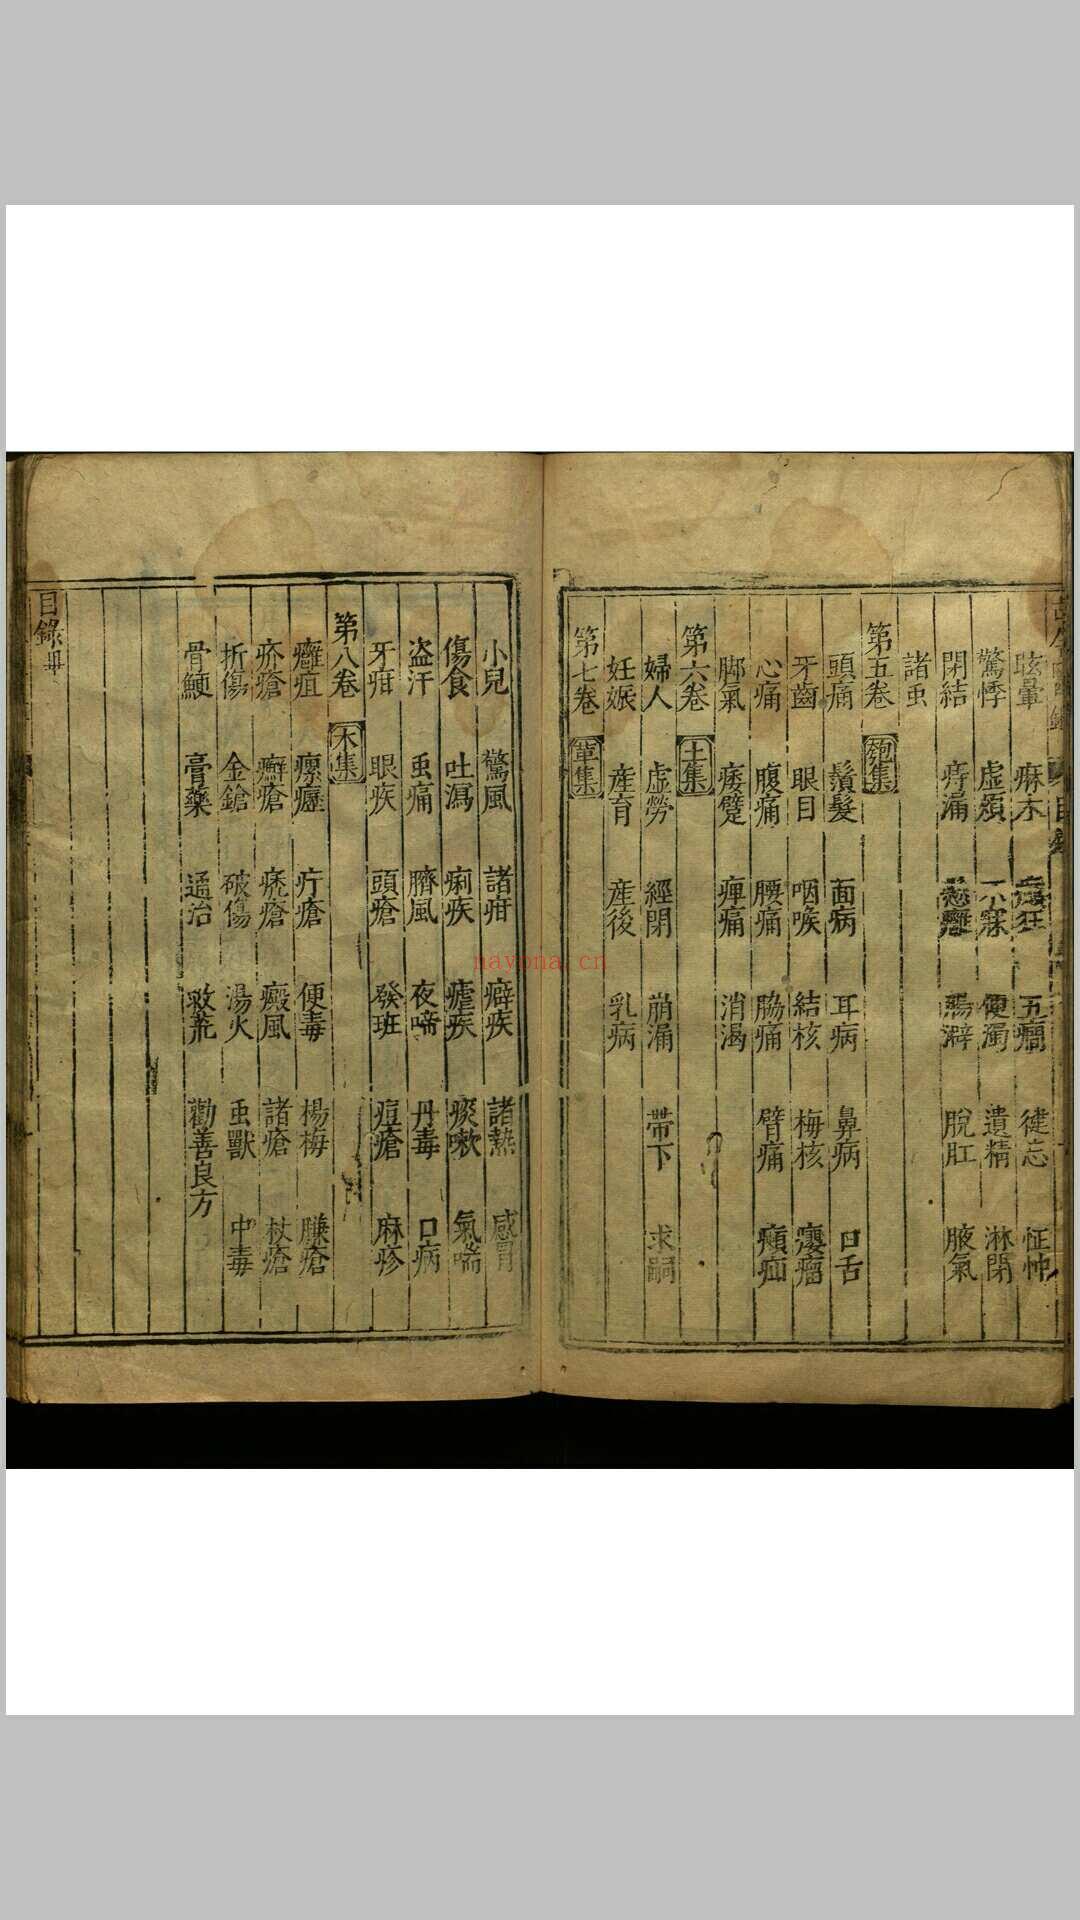 眩暈 麻木 癲狂 五癎 健忘 怔忡
驚悸 虛煩 不寐 便濁 遺精 淋閉
閉結 痔漏 懸癰 腸澼 脫肛 腋氣
諸虫
第五卷 匏集
頭痛 鬚髮 面病 耳病 鼻病 口舌
牙齒 眼目 咽喉 結核 梅核 癭瘤
心痛 腹痛 腰痛 脇痛 臂痛 㿗疝
脚氣 痿躄 痺痛 消渴
第六卷 土集
婦人 虛勞 經閉 崩漏 帶下 求嗣
妊娠 產育 產後 乳病
第七卷 革集
小兒 驚風 諸疳 癖疾 諸熱 感冒
傷食 吐瀉 痢疾 瘧疾 痰嗽 氣喘
盗汗 虫痛 臍風 夜啼 丹毒 口病
牙疳 眼疾 頭瘡 發班 痘瘡 麻疹
第八卷 木集
癰疽 瘰癧 疔瘡 便毒 楊梅 臁瘡
疥瘡 癬瘡 禿瘡 癜風 諸瘡 杖瘡
折傷 金鎗 破傷 湯火 虫獸 中毒
骨鯁 膏藥 通治 救荒 勸善良方
目錄畢
nayona.cn